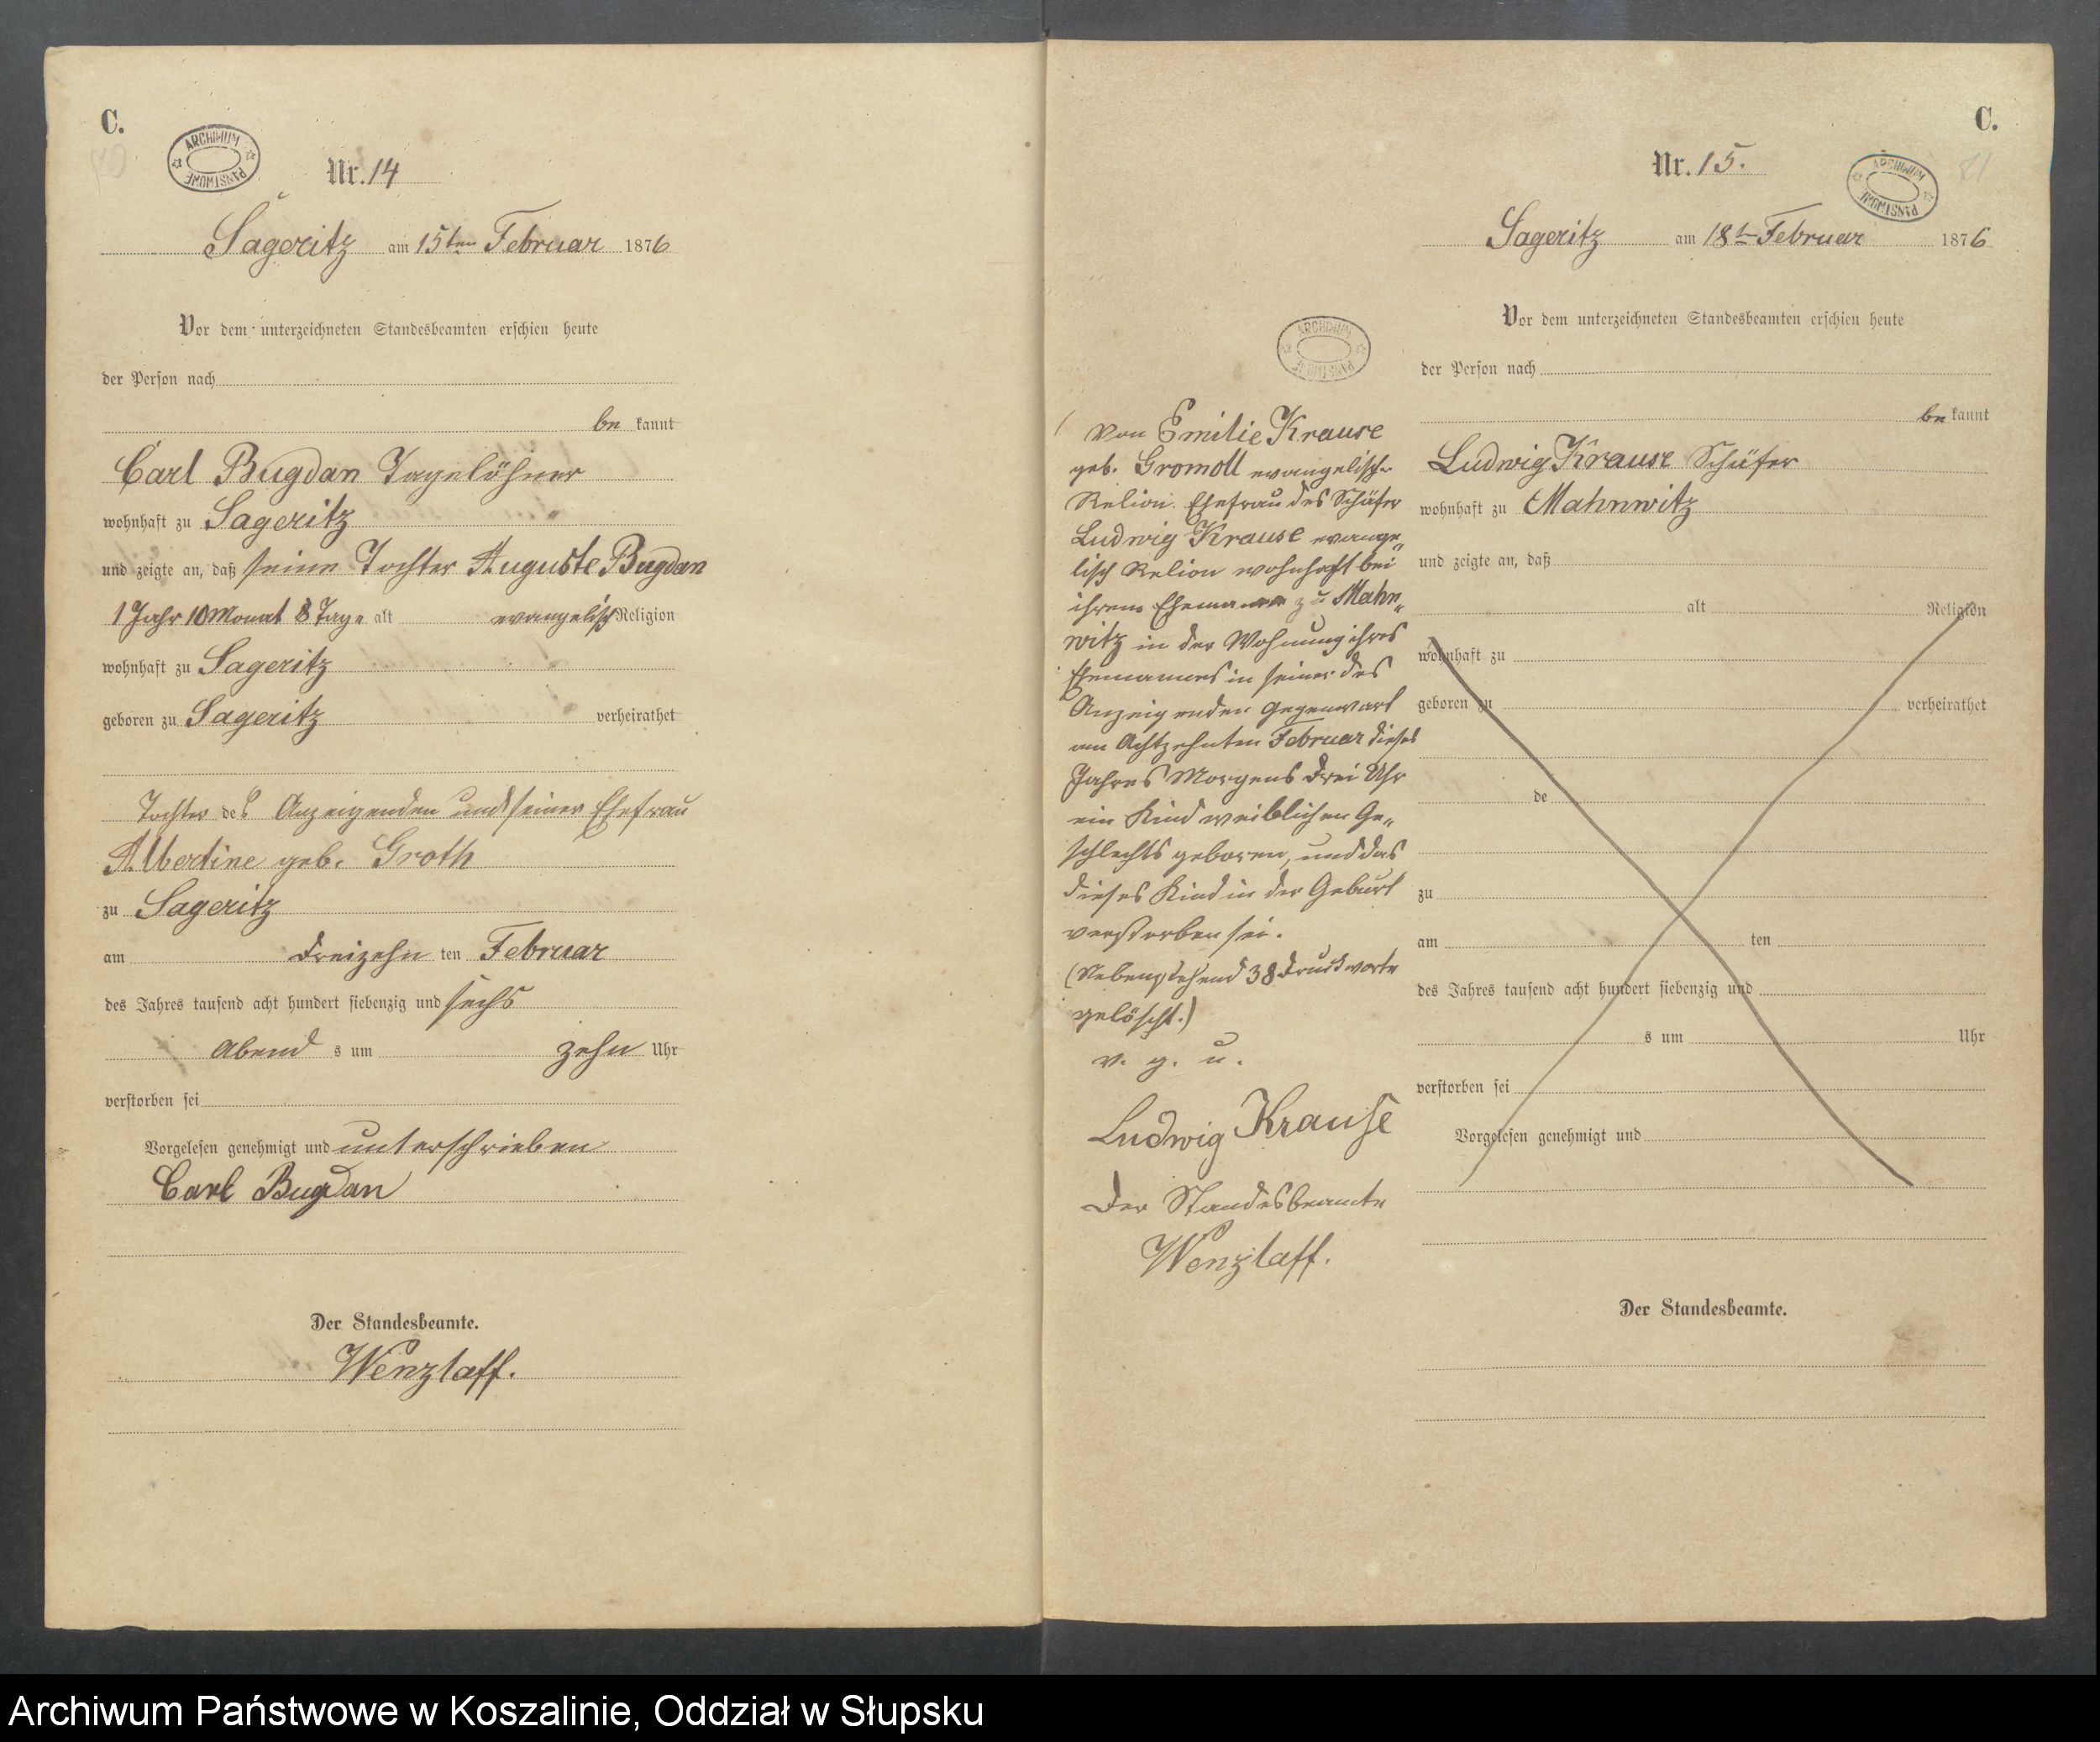 C.
ARCHIWUM PAŃSTWOWE
Nr. 14
Sageritz am 15ten Februar 1876
Vor dem unterzeichneten Standesbeamten erschien heute
der Person nach
be kannt
Carl Bugdan Tagelöhner
wohnhaft zu Sageritz
und zeigte an, daß seine Tochter Auguste Bugdan
1 Jahr 10 Monat 8 Tage alt evangelisch Religion
wohnhaft zu Sageritz
geboren zu Sageritz verheirathet
Tochter des Anzeigenden und seiner Ehefrau
Albertine geb. Groth
zu Sageritz
am dreizehn ten Februar
des Jahres tausend acht hundert siebenzig und sechs
Abend s um zehn Uhr
verstorben sei
Vorgelesen genehmigt und unterschrieben
Carl Bugdan
Der Standesbeamte.
Wenzlaff.
C.
Nr. 15.
ARCHIWUM PAŃSTWOWE
Sageritz am 18t Februar 1876
Vor dem unterzeichneten Standesbeamten erschien heute
der Person nach
be kannt
Ludwig Krause Schäfer
wohnhaft zu Mahnwitz
und zeigte an, daß
alt Religion
wohnhaft zu
geboren zu verheirathet
de
zu
am ten
des Jahres tausend acht hundert siebenzig und
s um Uhr
verstorben sei
Vorgelesen genehmigt und
Der Standesbeamte.
ARCHIWUM PAŃSTWOWE
von Emilie Krause
geb. Gromoll evangelischer
Relion. Ehefrau des Schäfer
Ludwig Krause evange„
lisch Relion wohnhaft bei
ihrem Ehemann zu Mahn„
witz in der Wohnung ihres
Ehemannes in seiner des
Anzeigenden Gegenwart
am Achtzehnten Februar dieses
Jahres Morgens drei Uhr
ein Kind weiblichen Ge„
schlechts geboren, und das
dieses Kind in der Geburt
verstorben sei.
(Nebenstehend 38 Druckworte
gelöscht.)
v. g. u.
Ludwig Krause
Der Standesbeamte
Wenzlaff.
Archiwum Państwowe w Koszalinie, Oddział w Słupsku